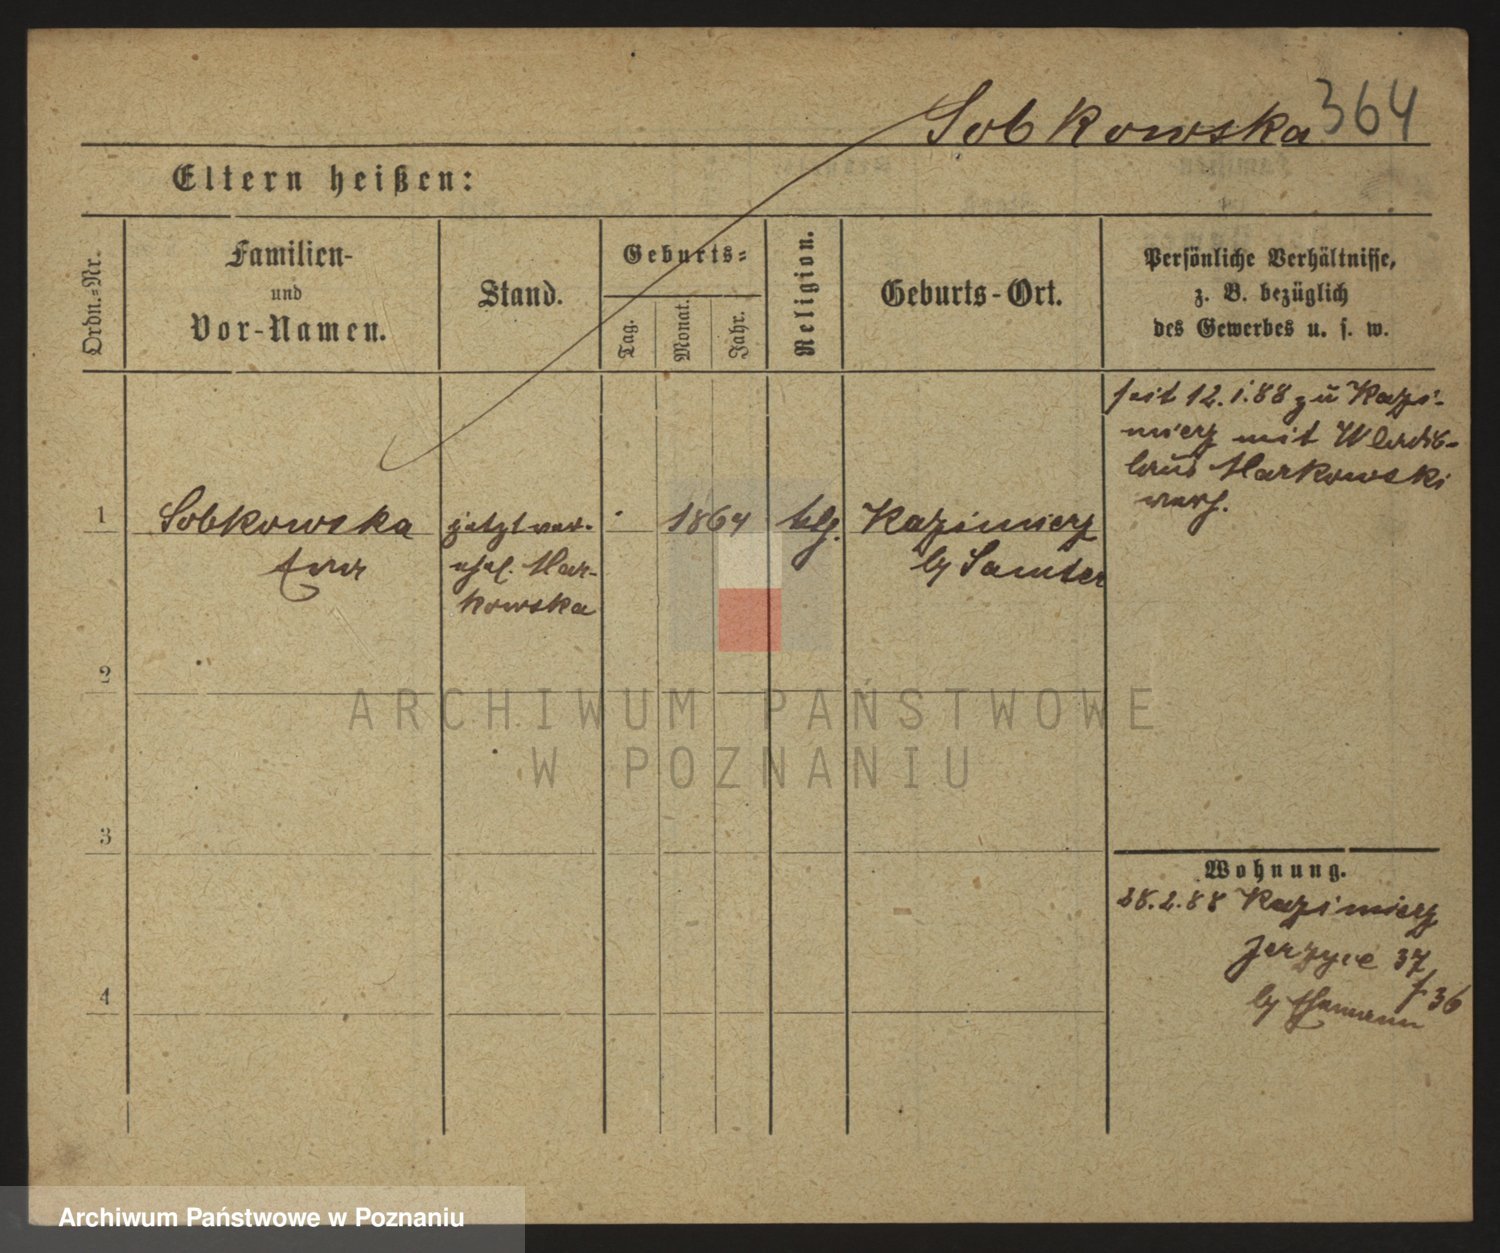 Sobkowska 364
Eltern heißen:
Ordn.-Nr.
Familien-
und
Vor-Namen.
Stand.
Geburts-
Tag.
Monat.
Jahr.
Religion.
Geburts-Ort.
Persönliche Verhältnisse,
z. B. bezüglich
des Gewerbes u. s. w.
seit 12.1.88 zu Kazi-
mierz mit Wladis-
laus Markowski
verh.
1 Sobkowska
Eva
jetzt ver-
ehel. Mar-
kowska
1864
ktlg.
Kazimierz
b/ Samter
2
3
4
Wohnung.
28.2.88 Kazimierz
Jerzyce 37
f 36
b/
ARCHIWUM PAŃSTWOWE
W POZNANIU
Archiwum Państwowe w Poznaniu